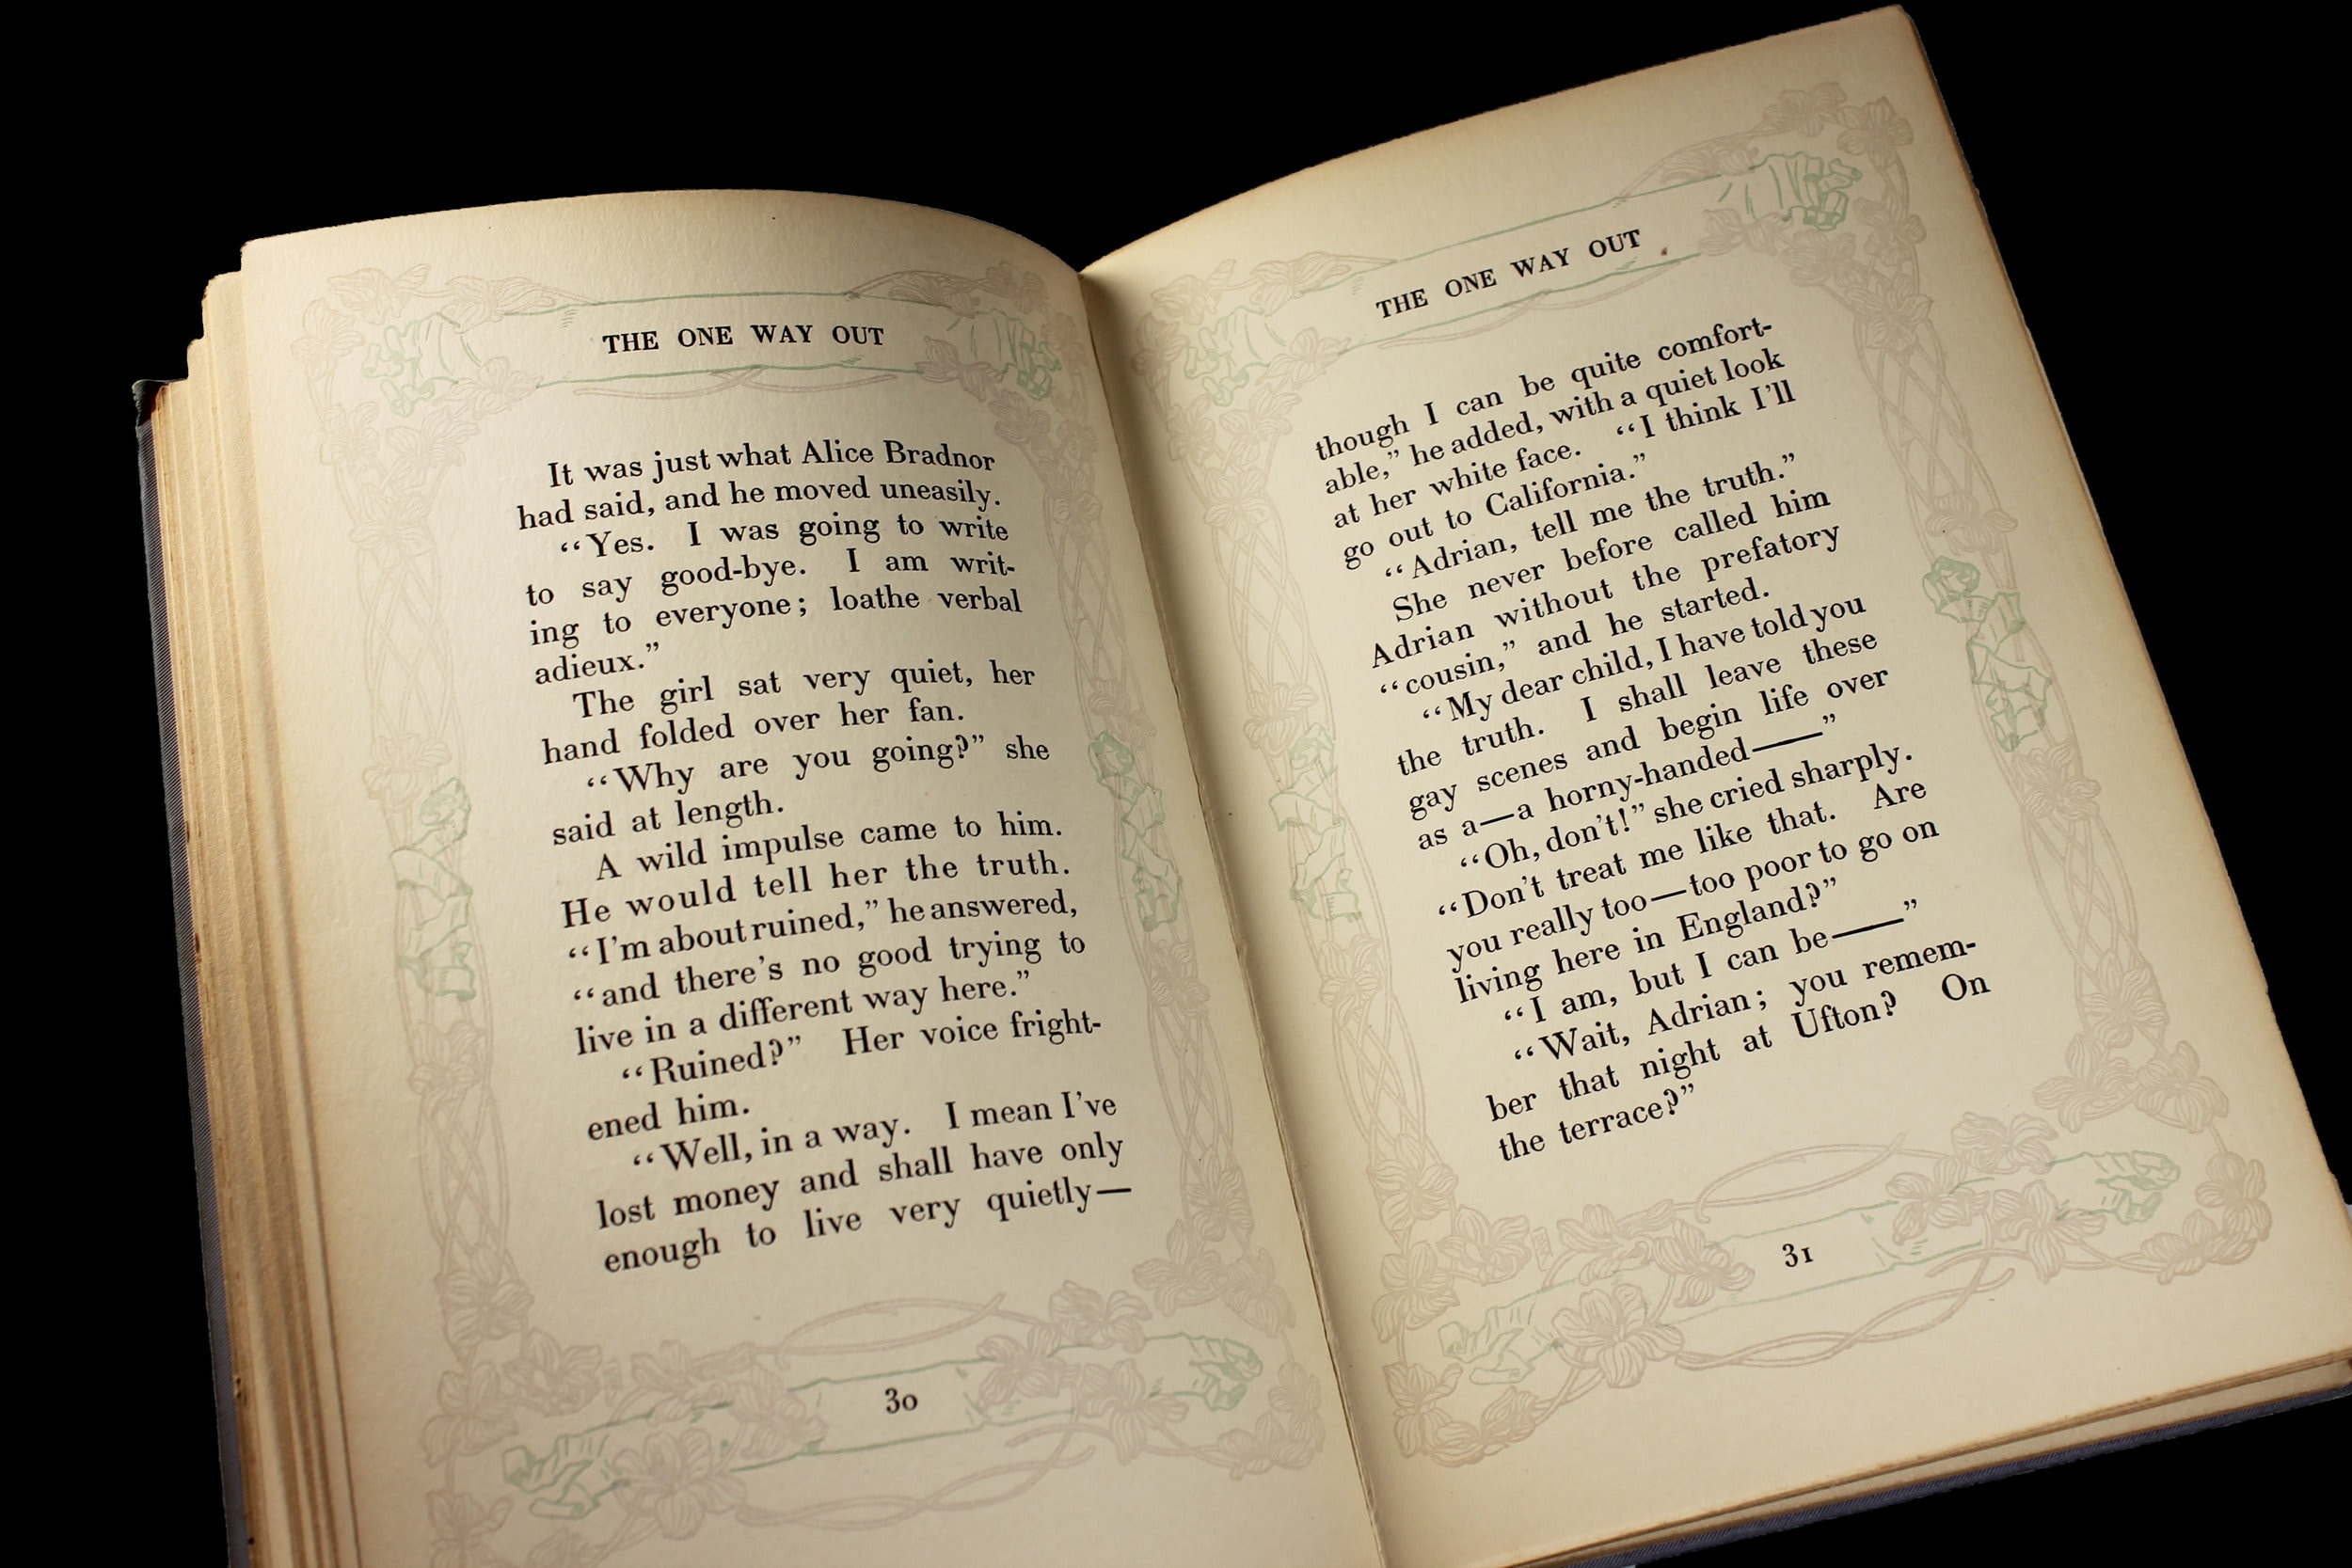 THE ONE WAY OUT
It was just what Alice Bradnor
had said, and he moved uneasily.
“Yes. I was going to write
to say good-bye. I am writ-
ing to everyone; loathe verbal
adieux.”
The girl sat very quiet, her
hand folded over her fan.
“Why are you going?” she
said at length.
A wild impulse came to him.
He would tell her the truth.
“I'm about ruined,” he answered,
“and there's no good trying to
live in a different way here.”
“Ruined?” Her voice fright-
ened him.
“Well, in a way. I mean I've
lost money and shall have only
enough to live very quietly—
30
THE ONE WAY OUT
though I can be quite comfort-
able,” he added, with a quiet look
at her white face. “I think I'll
go out to California.”
“Adrian, tell me the truth.”
She never before called him
Adrian without the prefatory
“cousin,” and he started.
“My dear child, I have told you
the truth. I shall leave these
gay scenes and begin life over
as a—a horny-handed——”
“Oh, don't!” she cried sharply.
“Don't treat me like that. Are
you really too—too poor to go on
living here in England?”
“I am, but I can be——”
“Wait, Adrian; you remem-
ber that night at Ufton? On
the terrace?”
31